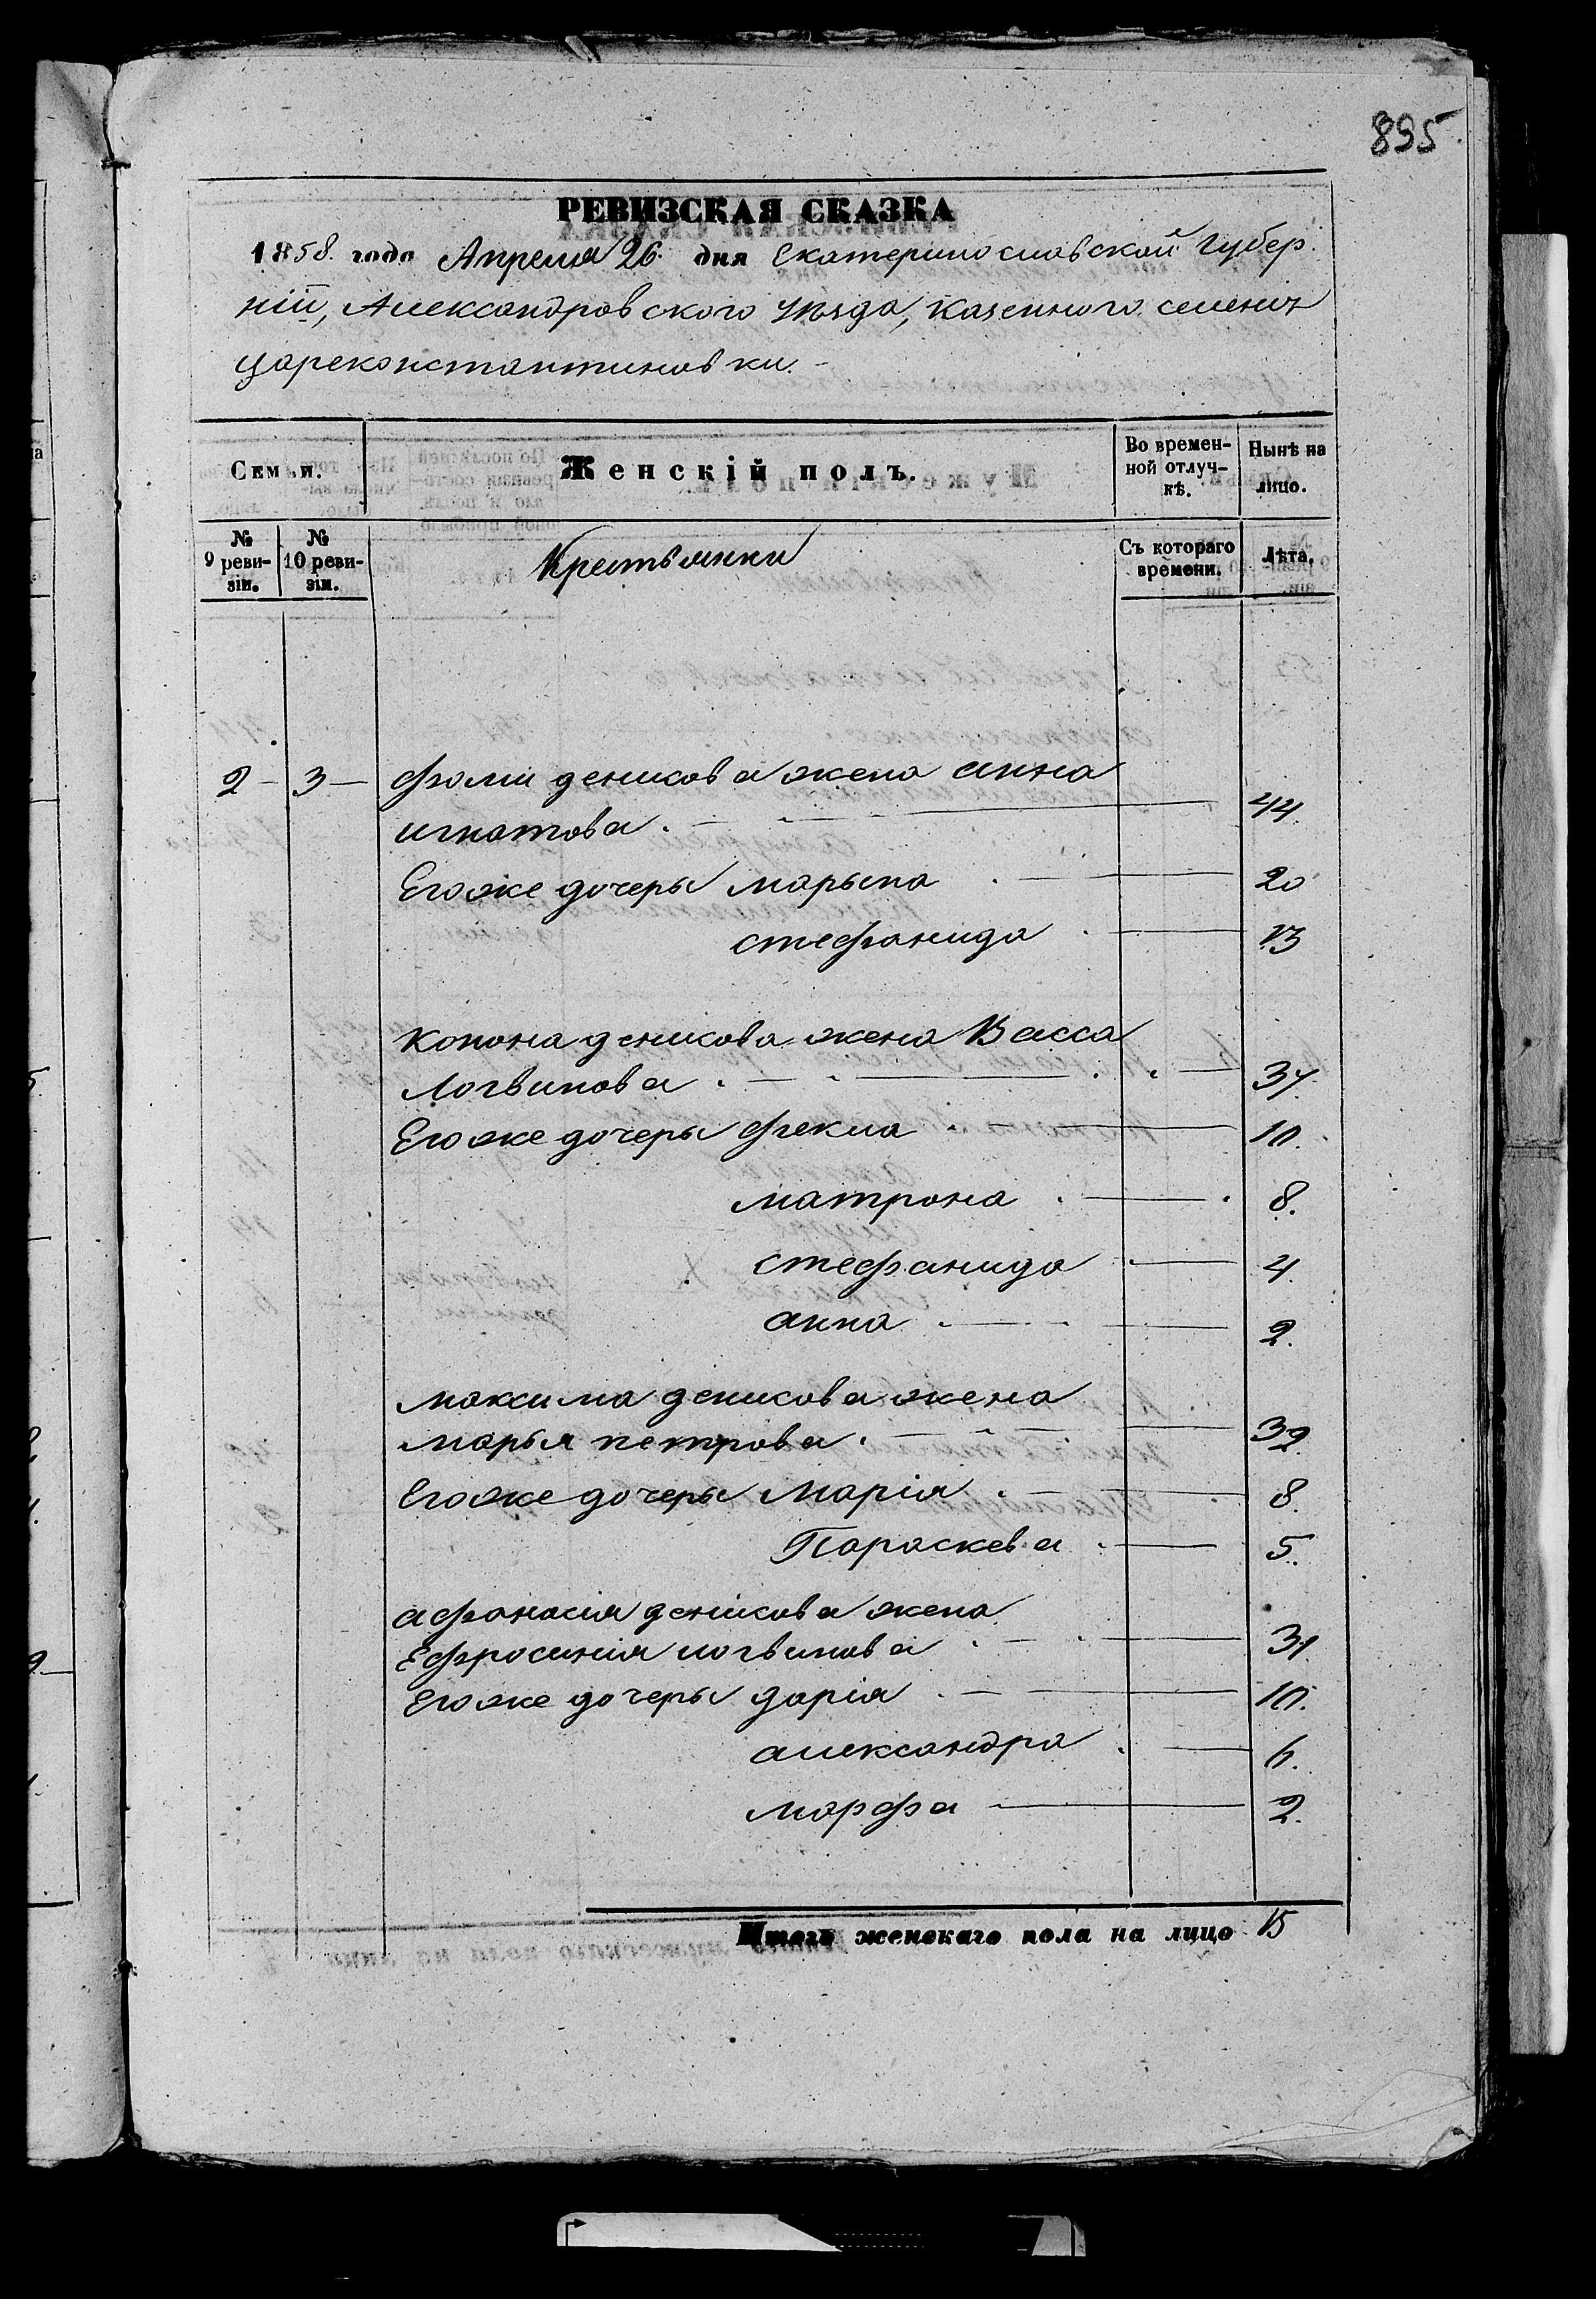 895.
РЕВИЗСКАЯ СКАЗКА
1858. года Апреля 26. дня Екатеринославской Губер-
нiи, Александровского Уѣзда, казенного селенiя
Цареконстантиновки. -
Семьи.
Женскiй полъ.
Во времен-
ной отлуч-
кѣ.
Нынѣ на
лицо.
№
9 реви-
зiи.
№
10 реви-
зiи.
Крестьянки
Съ котораго
времени.
Лѣта.
2 - 3 - фоми деникова жена анна
игнатова. 44.
Егоже дочеры марьина 20
стефанида 13
конона деникова жена Васса
Логвинова 37.
Егоже дочеры фекла 10.
матрона 8.
стефанида 4.
анна 2.
максима деникова жена
марья петрова 32.
Егоже дочеры Марiя 8.
Параскева 5.
афанасiя деникова жена
Ефросинiя логвинова 31
Егоже дочеры дарiя 10.
александра 6.
марфа 2.
Итогъ женскаго пола на лицо 15